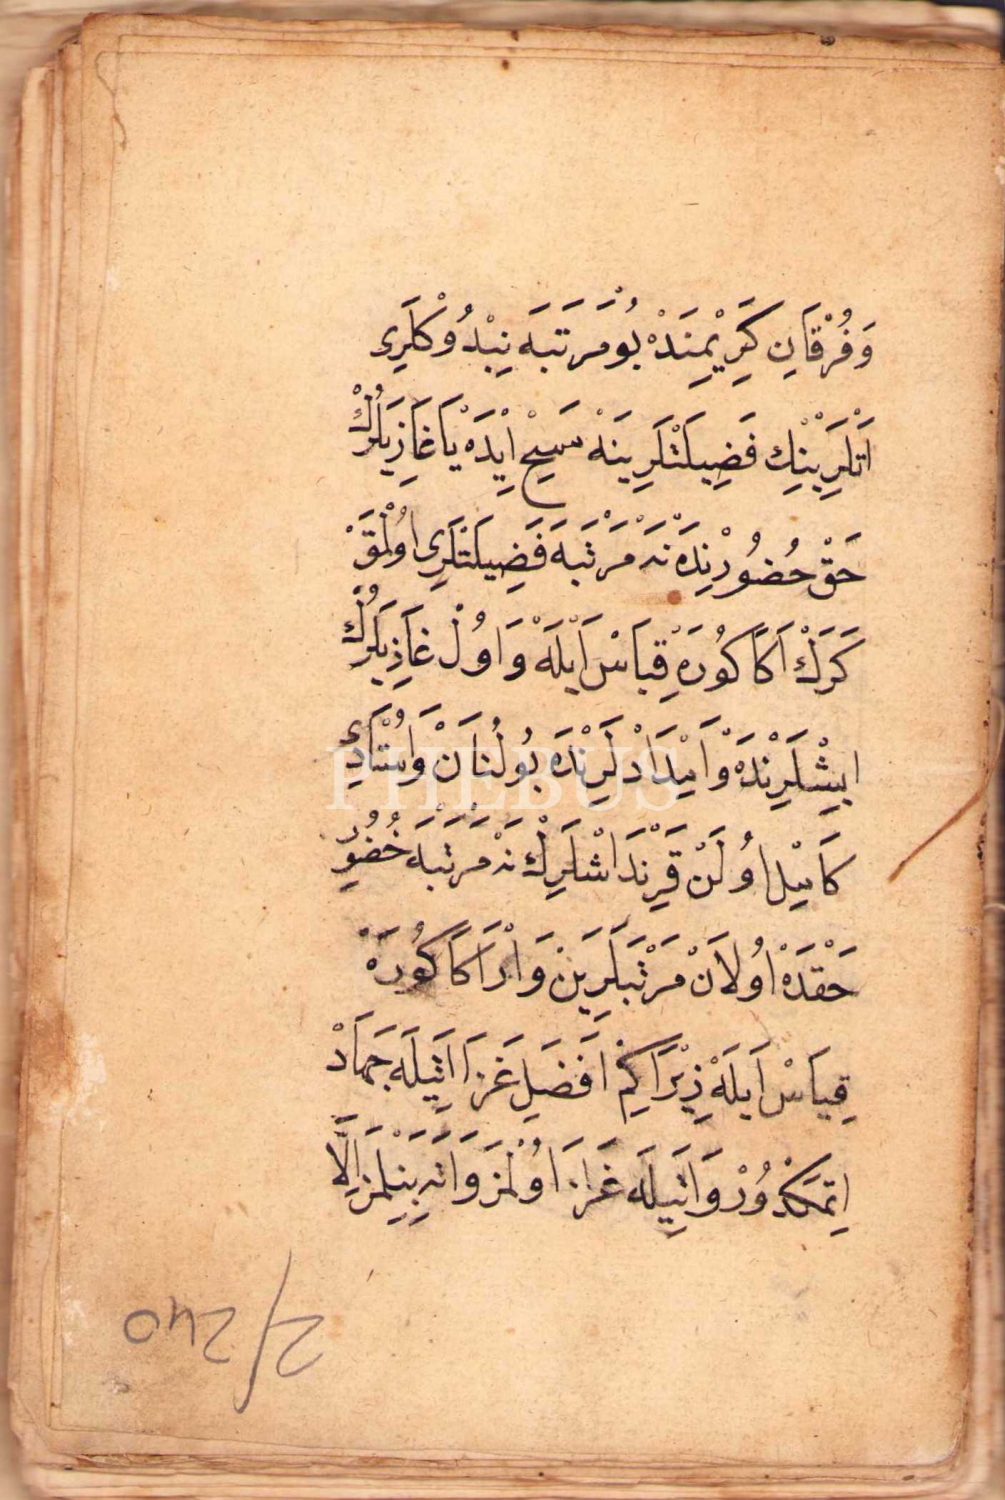 وَفُرْقَانِ كَرِيْمِنَدْه بُو مَرْتَبَه نِبْدُوكْلَرِى
اَتْلَرِيْنِكْ فَضِيلَتْلَرِينَه سَيِحْ اِيْدَه يَا غَازِيلَرُكْ
حَقْ حُضُورُنْدَه نَه مَرْتَبَه فَضِيلَتْلَرِى اُولْمَقْ
كَرَكْ اَكَا كُورَه قِيَاسْ اَيْلَه وَاُولْ غَاذِيلَرُكْ
اِيشْلَرِنْدَه وَاَمْدَادْلَرِنْدَه بُولُنَانْ وَاُسْتَادِ
كَامِيلْ اُولَنْ قَرِنْدَاشْلَرِكْ نَه مَرْتَبَه حُضُورِ
حَقْدَه اُولَانْ مَرْتَبَلَرِينْ وَارْ اَكَا كُورَه
قِيَاسْ اَيْلَه زِيْرَا كِمْ اَفْضَلِ غَزَا اَتِيلَه جِهَادْ
اِتْمَكْدُورْ وَاَتِيلَه غَزَا اُولْنَمَزْ وَاَتَه بِنِلْمَزْ اِلَّا
PHEBUS
2/240